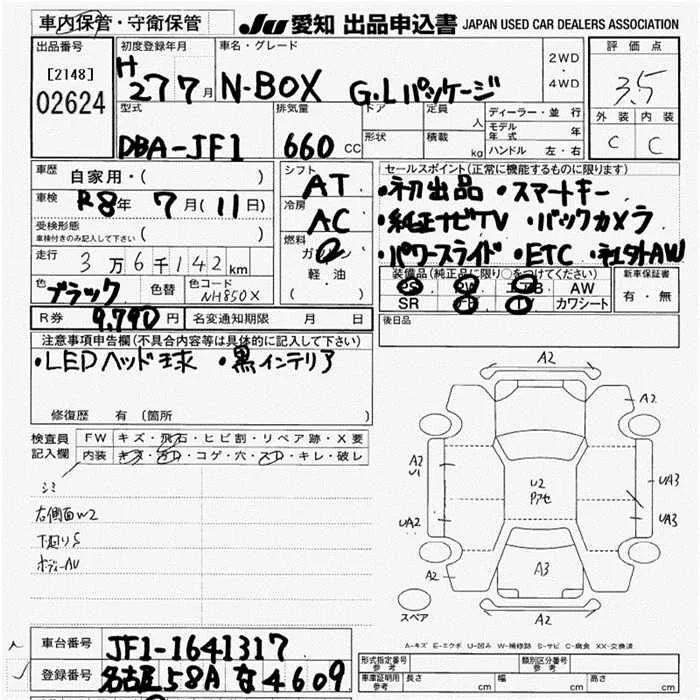 車内保管・守衛保管 JU 愛知 出品申込書 JAPAN USED CAR DEALERS ASSOCIATION
出品番号 初度登録年月 車名・グレード 2WD ・ 4WD 評価点
[2148] H 27 7月 N-BOX G.Lパッケージ 3.5
02624 型式 排気量 ドア 定員 人 ディーラー・並行 外装 内装
DBA-JF1 660 CC 形状 積載 kg モデル年式 年 C C
ハンドル 左・右
車歴 自家用・( ) シフト AT セールスポイント(正常に機能するものに限ります)
車検 R8年 7月(11日) 冷房 AC ・初出品 ・スマートキー
受検形態 車検付きのみ記入して下さい ( ) ・純正ナビTV ・バックカメラ
走行 3万6千142km 燃料 ガソリン 軽油 ( ) ・パワースライド ・ETC ・社外AW
色 ブラック 色替 色コード NH850X 装備品(純正品に限り○をつけてください) 新車保証書
PS PW エアB AW 有・無
SR ナビ TV カワシート
R券 9,790円 名変通知期限 月 日 後日品
注意事項申告欄(不具合内容等は具体的に記入して下さい)
・LEDヘッド球 ・黒インテリア
修復歴 有 (箇所 )
検査員記入欄 FW キズ・飛石・ヒビ割・リペア跡・X要
内装 キズ・汚レ・コゲ・穴・スレ・キレ・破レ
シミ
右側面W2
下廻りS
ボディーAU
A2
A2
A2
U1
UA3
U2
アセ
UA2
UA3
A2
A3
A2
スペア
A-キズ E-エクボ U-凹み W-補修跡 S-サビ C-腐食 XX-交換済
車台番号 JF1-1641317 型式指定番号 参考 類別区分番号 参考
登録番号 名古屋58A な4609 車庫証明用 参考 長さ cm 幅 cm 高さ cm